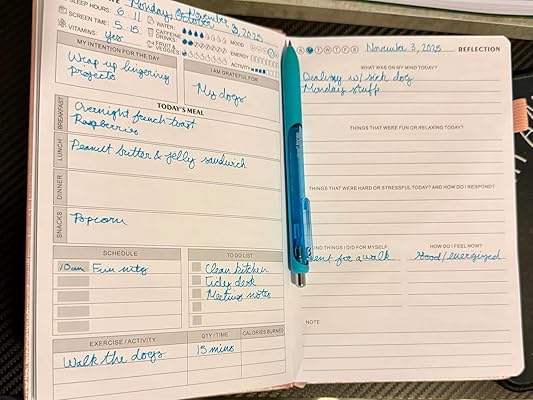 Monday, November 3, 2025
October
SLEEP HOURS: 6 11
WATER:
SCREEN TIME: 5 15
CAFFEINE DRINKS
MOOD
VITAMINS: Yes
FRUIT & VEGGIES
ENERGY
ACTIVITY
MY INTENTION FOR THE DAY
Wrap up lingering
projects
I AM GRATEFUL FOR
My dogs
TODAY'S MEAL
BREAKFAST
Overnight french toast
Raspberries
LUNCH
Peanut butter & jelly sandwich
DINNER
SNACKS
Popcorn
SCHEDULE
10am Fun mtg
TO DO LIST
Clean kitchen
Tidy desk
Meeting notes
EXERCISE / ACTIVITY
QTY / TIME
CALORIES BURNED
Walk the dogs
15 mins
S M T W T F S
November 3, 2025
REFLECTION
WHAT WAS ON MY MIND TODAY?
Dealing w/ sick dog
Monday stuff
THINGS THAT WERE FUN OR RELAXING TODAY?
THINGS THAT WERE HARD OR STRESSFUL TODAY? AND HOW DO I RESPOND?
KIND THINGS I DID FOR MYSELF
HOW DO I FEEL NOW?
Went for a walk
Good/energized
NOTE